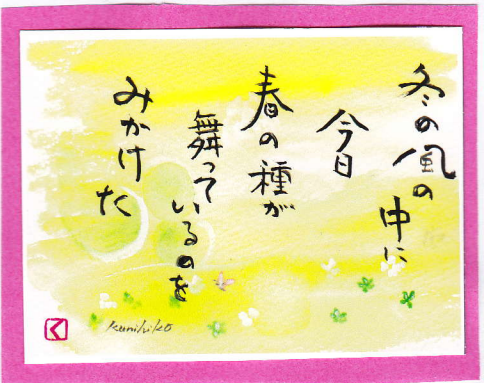 冬の風の
中に
今日
春の種が
舞って
いるのを
みかけ
た
kunihiko
く